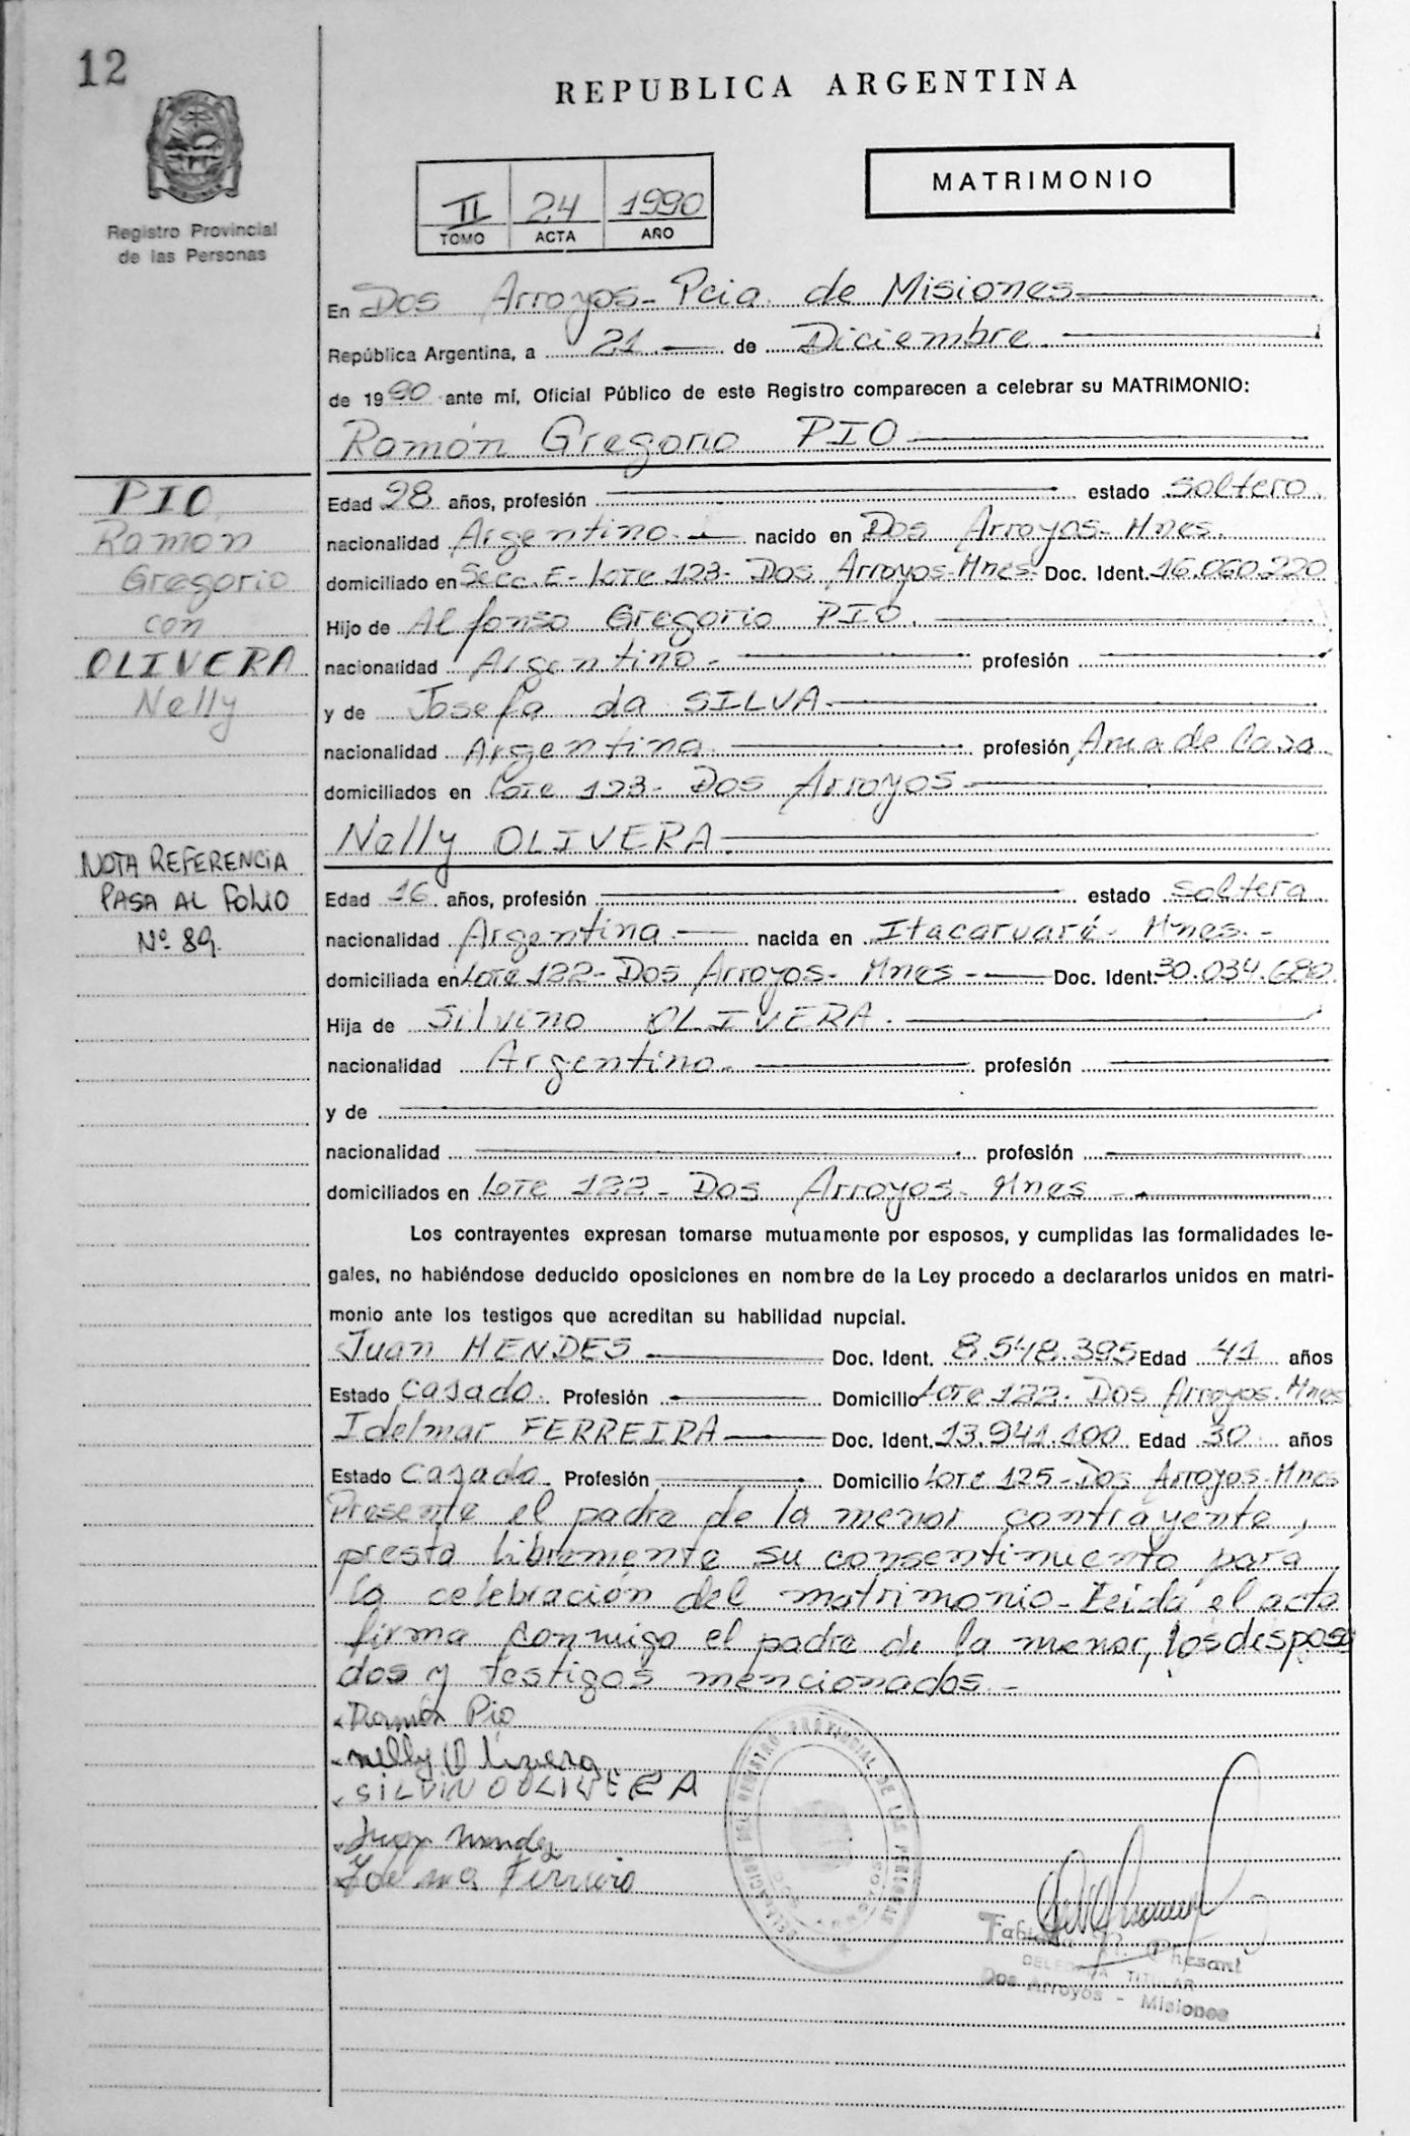 12
REPUBLICA ARGENTINA
Registro Provincial
de las Personas
II 24 1990
TOMO ACTA AÑO
MATRIMONIO
En Dos Arroyos - Pcia. de Misiones
República Argentina, a 21 de Diciembre
de 1990 ante mí, Oficial Público de este Registro comparecen a celebrar su MATRIMONIO:
Ramón Gregorio PIO
PIO
Ramon
Gregorio
con
OLIVERA
Nelly
Edad 28 años, profesión estado soltero.
nacionalidad Argentino. nacido en Dos Arroyos- Mnes.
domiciliado en Secc. E- Lote 123- Dos Arroyos-Mnes- Doc. Ident. 16.060.220
Hijo de Alfonso Gregorio PIO.
nacionalidad Argentino - profesión
y de Josefa da SILVA
nacionalidad Argentina. profesión Ama de Casa
domiciliados en Lote 123- Dos Arroyos
Nelly OLIVERA.
NOTA REFERENCIA
PASA AL FOLIO
Nº 89.
Edad 16 años, profesión estado soltera
nacionalidad Argentina nacida en Itacaruaré- Mnes. -
domiciliada en Lote 122- Dos Arroyos- Mnes - Doc. Ident. 30.034.680.
Hija de Silvino OLIVERA.
nacionalidad Argentino. profesión
y de
nacionalidad profesión
domiciliados en Lote 122- Dos Arroyos- Mnes -
Los contrayentes expresan tomarse mutuamente por esposos, y cumplidas las formalidades le-
gales, no habiéndose deducido oposiciones en nombre de la Ley procedo a declararlos unidos en matri-
monio ante los testigos que acreditan su habilidad nupcial.
Juan MENDES Doc. Ident. 8.548.395 Edad 41 años
Estado casado. Profesión Domicilio Lote 122- Dos Arroyos- Mnes
Idelmar FERREIRA Doc. Ident. 13.941.100 Edad 30 años
Estado casado. Profesión Domicilio Lote 125-Dos Arroyos-Mnes
Presente el padre de la menor contrayente,
presta libremente su consentimiento para
la celebración del matrimonio- Leída el acta
firma conmigo el padre de la menor, los desposa
dos y testigos mencionados -
Ramón Pio
nelly Olivera
SILVINO OLIVERA
Juan Mendez
DELEGACION DEL REGISTRO PROVINCIAL DE LAS PERSONAS
DOS ARROYOS
DELEGADA TITULAR
Dos Arroyos - Misiones